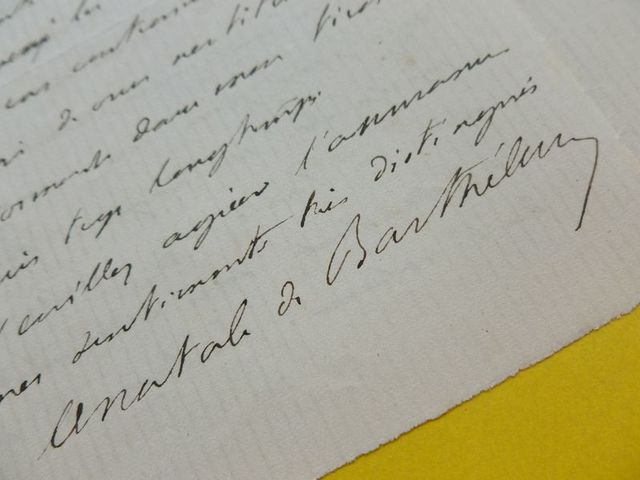 cas contraire
de vous restituer
dorment dans mon tiroir
depuis trop longtemps.
Veuillez agréer l'assurance
mes sentiments très distingués
Anatole de Barthélemy